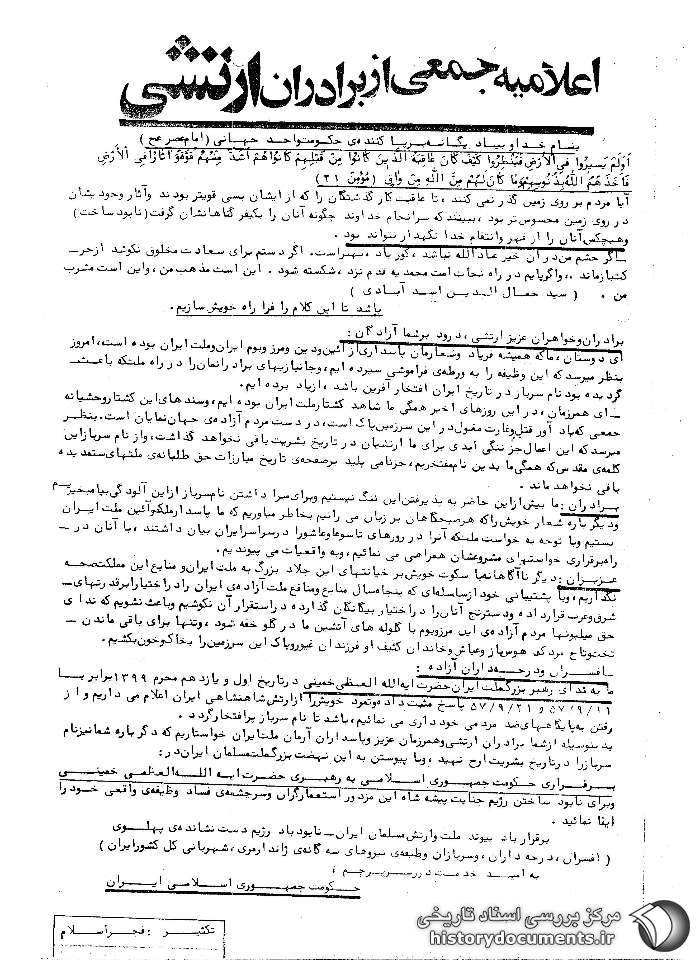 اعلامیه جمعی از برادران ارتشی
بنام خدا و بیاد یگانه برپا کننده‌ی حکومت واحد جهانی (امام عصر عج)
اَوَلَم یَسیرُوا فِی الاَرضِ فَیَنظُرُوا کَیفَ کانَ عاقِبَةُ الَّذینَ کانُوا مِن قَبلِهِم کانُوا هُم اَشَدَّ مِنهُم قُوَّةً وَ آثاراً فِی الاَرضِ
فَاَخَذَهُمُ اللهُ بِذُنُوبِهِم وَ ما کانَ لَهُم مِنَ اللهِ مِن واقٍ (مؤمن ۲۱)
آیا مردم بر روی زمین گذر نمی کنند، تا عاقبت کار گذشتگان را که از ایشان بسی قویتر بودند وآثار وجود یشان
در روی زمین محسوس تر بود، ببینند که سرانجام خداوند چگونه آنان را بکیفر گناهانشان گرفت (نابود ساخت)
وهیچکس آنان را از قهر وانتقام خدا نگهدار نتواند بود.
ـ اگر چشم من در آن خیر عباد الله نباشد، کور باد، بهتر است. اگر دستم برای سعادت مخلوق نکوشد از حرـ
کت بازماند.، واگر پایم در راه نجات امت محمد یه قدم نزد، شکسته شود. این است مذهب من، واین است مشرب
من. (سید جمال الدین اسد آبادی)
باشد تا این کلام را فرا راه خویش سازیم.
برادران وخواهران عزیز ارتشی، درود برشما آزادگان:
ای دوستان، ماکه همیشه فریاد وشعارمان پاسداری از آئین ودین ومرز وبوم ایران وملت ایران بوده است، امروز
بنظر میرسد که این وظیفه را به ورطه‌ی فراموشی سپرده ایم، وجانبازیهای برادرانمان را در راه ملت که باعث ـ
گردیده بود نام سرباز در تاریخ ایران افتخار آفرین باشد، از یاد برده ایم.
ـ ای همرزمان، در این روزهای اخیر همگی ما شاهد کشتار ملت ایران بوده ایم، وسندهای این کشتار وحشیانه
جمعی که یاد آور قتل وغارت مغول در این سرزمین پاک است، در دست مردم آزاده‌ی جهان نمایان است. بنظر
میرسد که این اعمال جز ننگی ابدی برای ما ارتشیان در تاریخ بشریت باقی نخواهد گذاشت، واز نام سرباز این
کلمه‌ی مقدس که همگی ما بدین نام مفتخریم، جز نامی پلید بر صفحه‌ی تاریخ مبارزات حق طلبانه‌ی ملتهای ستمدیده
باقی نخواهد ماند.
برادران: ما بیش از این حاضر به پذیرفتن این ننگ نیستیم وبرای مبرا داشتن نام سرباز از این آلودگی بپا میخیزیم
ودیگر باره شعار خویش را که هر صبحگاهان بر زبان می رانیم بخاطر میاوریم که ما پاسدار ملک وآئین ملت ایران
هستیم وبا توجه به خواست ملت که آنرا در روزهای تاسوعا وعاشورا در سراسر ایران بیان داشتند، با آنان در ـ
راه برقراری خواستهای مشروعشان همراهی می نمائیم، وبه واقعیات می پیوندیم.
عزیزان: دیگر ناآگاهانه با سکوت خویش بر خیانتهای این جلاد بزرگ به ملت ایران ومنافع این مملکت صحه
نگذاریم، وبا پشتیبانی خود از سلسله‌ای که پنجاه سال منابع ومنافع ملت آزاده‌ی ایران را در اختیار ابرقدرتهای ـ
شرق وغرب قرار داده ودسترنج آنان را در اختیار بیگانگان گذارده در استقرار آن نکوشیم وباعث نشویم که ندای
حق میلیونها مردم آزاده‌ی این مرزوبوم با گلوله های آتشین ما در گلو خفه شود، وتنها برای باقی ماندن ـ
تخت وتاج مردکی هوسباز وعیاش وخاندان کثیف او فرزندان غیور وپاک این سرزمین را بخاک وخون بکشیم.
ـ افسران ودرجه داران آزاده:
ما به ندای رهبر بزرگ ملت ایران حضرت آیه الله العظمی خمینی در تاریخ اول و یازدهم محرم ۱۳۹۹ برابر بـا
۵۷/۹/۱۱ و ۵۷/۹/۲۱ پاسخ مثبت داده و تمرد خویش را از ارتش شاهنشاهی ایران اعلام می داریم و از
رفتن به پایگاههای ضد مردمی خودداری می نمائیم، باشد تا نام سرباز پر افتخار گردد.
بدینوسیله از شما برادران ارتشی وهمرزمان عزیز وپاسداران آرمان ملت ایران خواستاریم که دگر باره شما نیز نام
سرباز را در تاریخ بشریت ارج نهید، وبا پیوستن به این نهضت بزرگ ملت مسلمان ایران در:
برقراری حکومت جمهوری اسلامی به رهبری حضرت آیه الله العظمی خمینی
وبرای نابود ساختن رژیم جنایت پیشه شاه این مزدور استعمارگران وسرچشمه‌ی فساد وظیفه‌ی واقعی خود را
ایفا نمائید.
برقرار باد پیوند ملت وارتش مسلمان ایران ـ نابود باد رژیم دست نشانده‌ی پهلوی
(افسران، درجه داران، وسربازان وظیفه‌ی نیروهای سه گانه‌ی ژاندارمری، شهربانی کل کشور ایران)
به امید خدمت در زیر پرچم:
حکومت جمهوری اسلامی ایران
تکثیر: فجر اسلام
مرکز بررسی اسناد تاریخی
historydocuments.ir